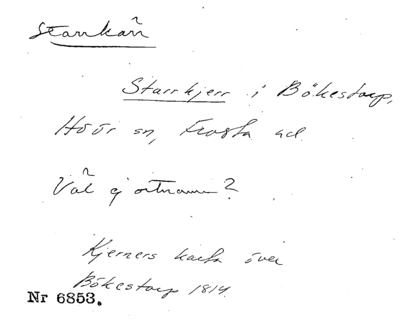 Starrkärr
Starrkjerr i Bökestorp,
Höör sn, Frosta hd
Väl ej ortnamn?
Kjerners karta över
Bökestorp 1814.
Nr 6853.